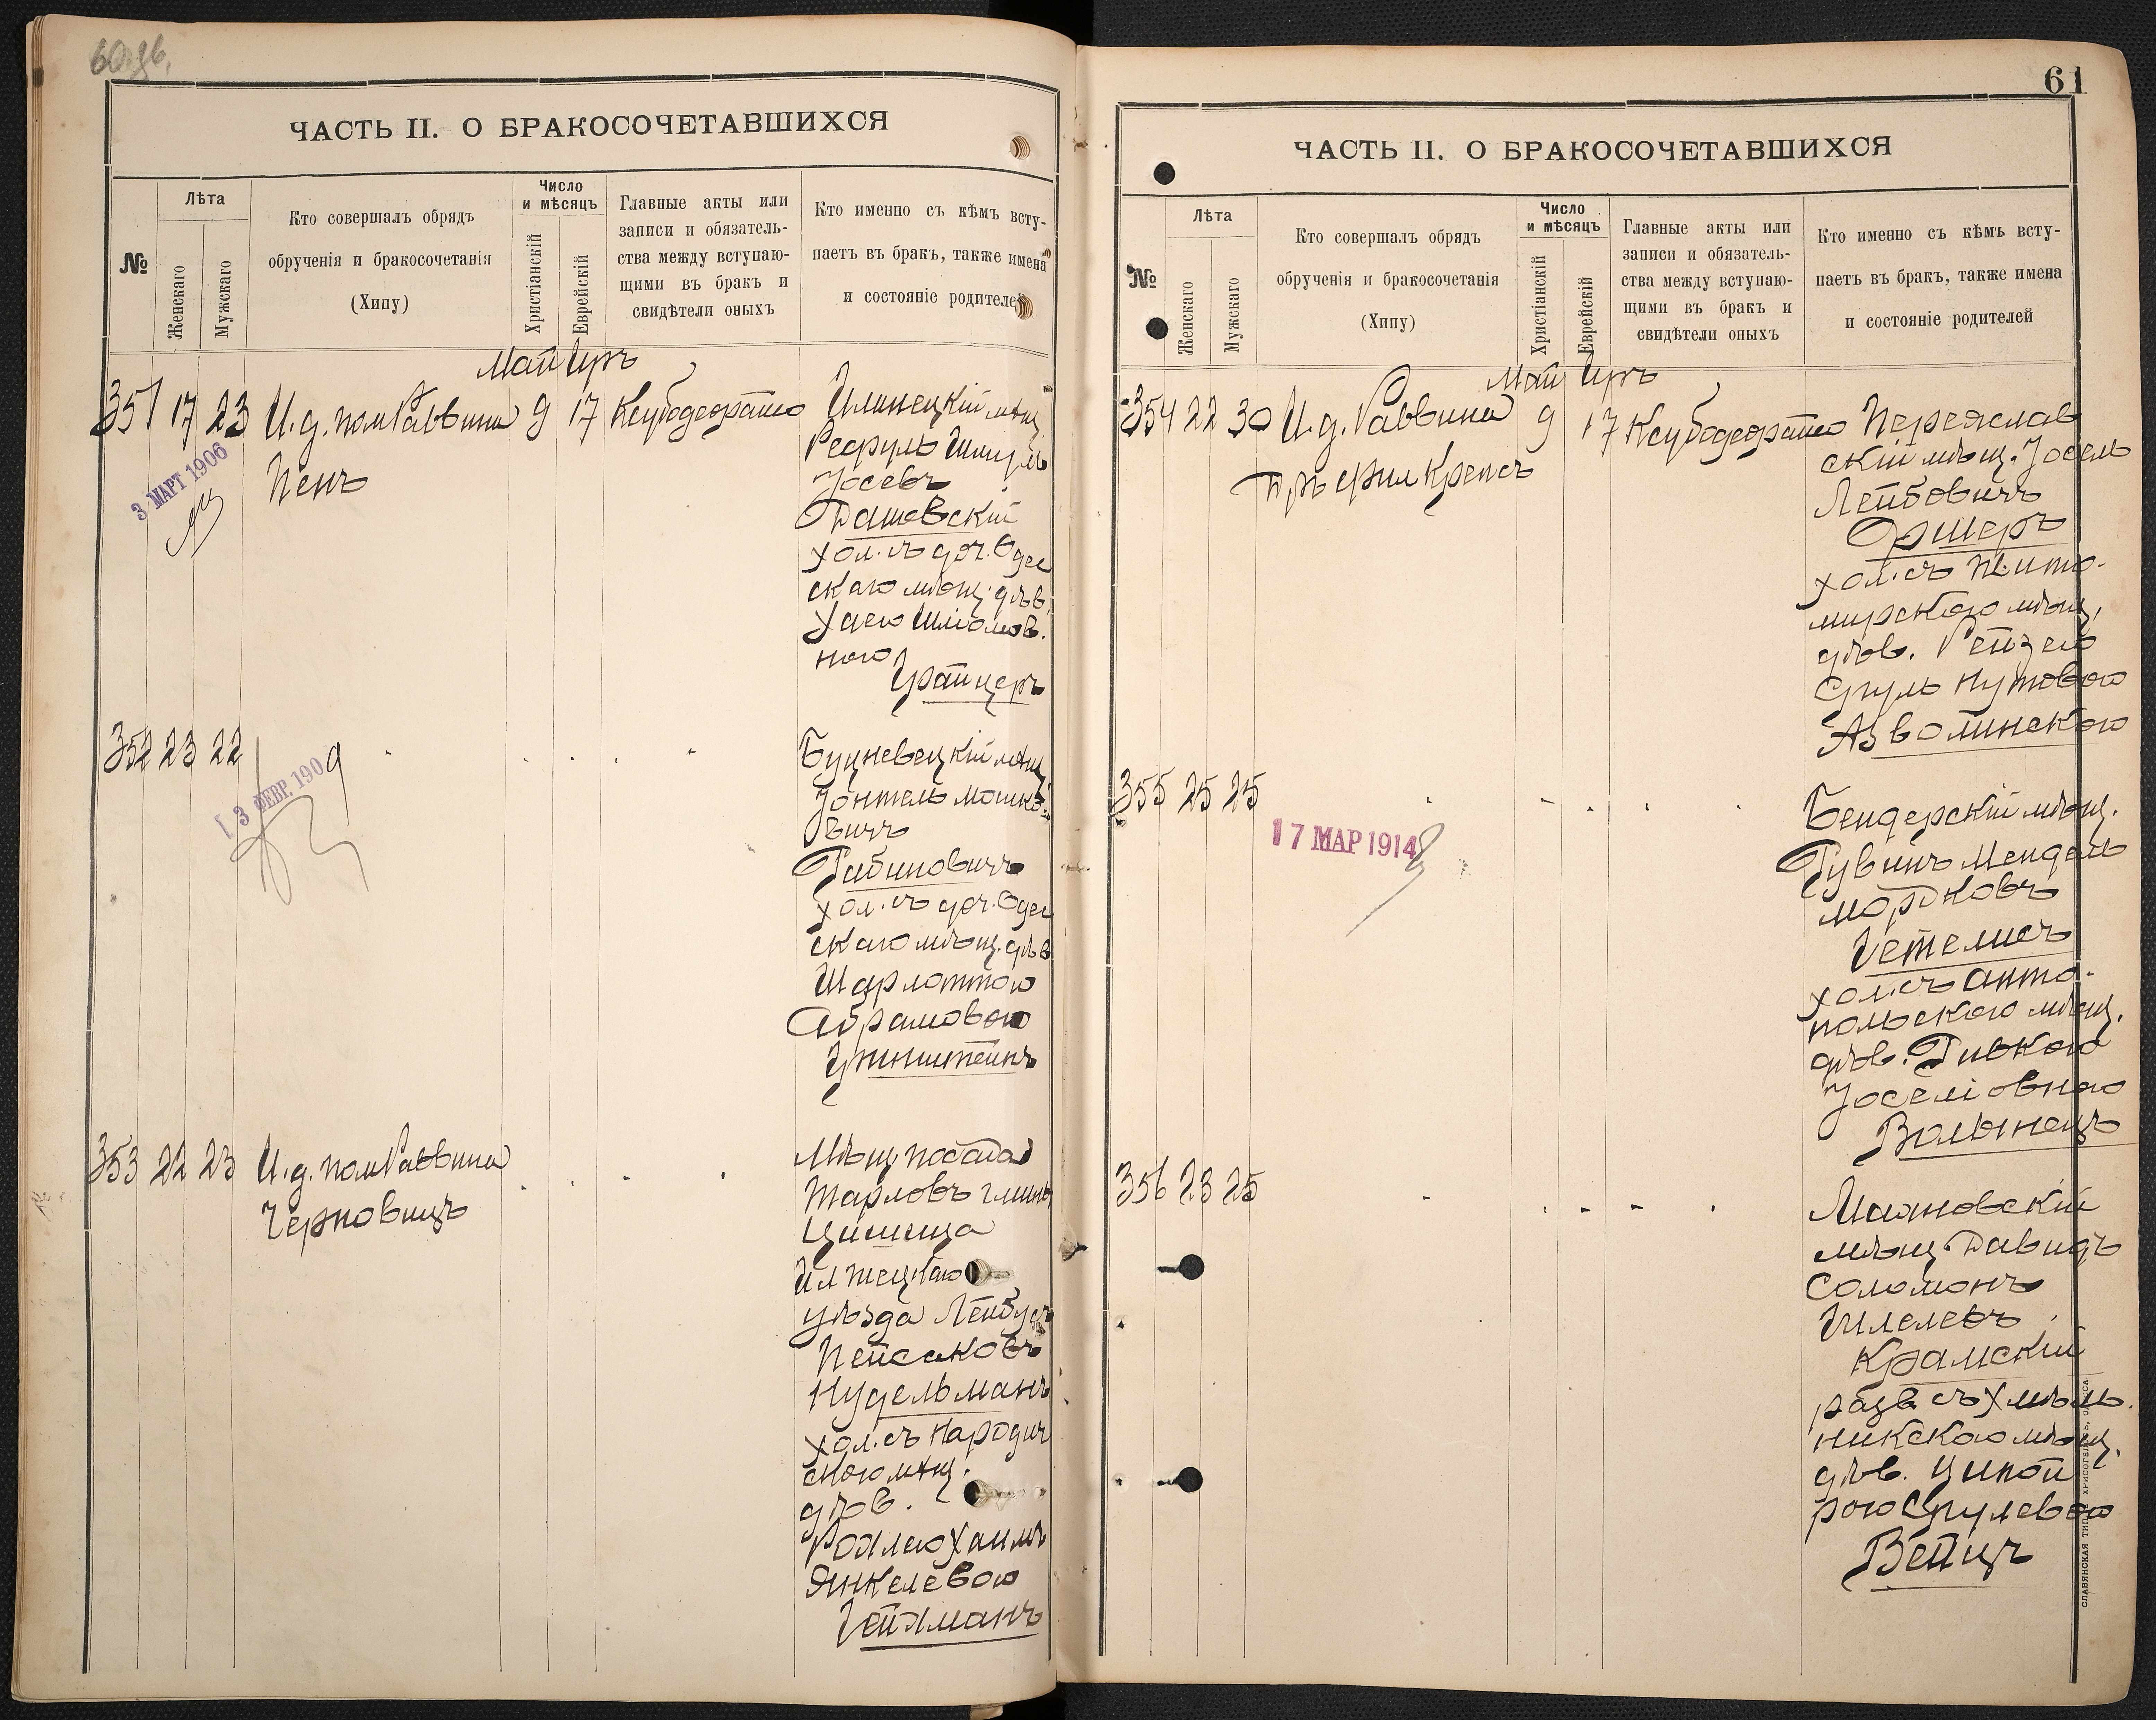 60 зв.
ЧАСТЬ II. О БРАКОСОЧЕТАВШИХСЯ
№
Лѣта
Женскаго
Мужскаго
Кто совершалъ обрядъ
обрученія и бракосочетанія
(Хипу)
Число
и мѣсяцъ
Христіанскій
Еврейскій
Главные акты или
записи и обязатель-
ства между вступаю-
щими въ бракъ и
свидѣтели оныхъ
Кто именно съ кѣмъ всту-
паетъ въ бракъ, также имена
и состояніе родителей
Май Иръ
351 17 23 И.д. пом Раввина 9 17 Ксубодеорайсо Илинецкій мѣщ.
Пенъ
3 МАРТ 1906
Шмуль
Іосевъ
Дашевскій
хол. съ доч. Одес
скаго мѣщ. дѣв.
Хаею Шліомов.
ною
Грайцеръ
352 23 22
3 ФЕВР. 1909
Буцневецкій мѣщ.
Іонтель Мошко-
вичъ
Рабиновичъ
хол. съ доч. Одес
скаго мѣщ. дѣв
Шарлоттою
Абрамовою
353 22 23 И.д. пом Раввина
Черновицъ
Мѣщ посада
Тарловъ
Илжецкаго
уѣзда Лейбусь
Пейсаковъ
Нудельманъ
хол. съ Народич
скою мѣщ.
дѣв.
Хаимъ
Янкелевою
Гейхманъ
61
ЧАСТЬ II. О БРАКОСОЧЕТАВШИХСЯ
№
Лѣта
Женскаго
Мужскаго
Кто совершалъ обрядъ
обрученія и бракосочетанія
(Хипу)
Число
и мѣсяцъ
Христіанскій
Еврейскій
Главные акты или
записи и обязатель-
ства между вступаю-
щими въ бракъ и
свидѣтели оныхъ
Кто именно съ кѣмъ всту-
паетъ въ бракъ, также имена
и состояніе родителей
Май Иръ
354 22 30 И.д. Раввина 9 17 Ксубодеорайсо Переяслав
Крепсъ
скій мѣщ. Іосель
Лейбовичъ
Оршеръ
хол. съ Жито-
мирскою мѣщ.
дѣв. Рейзею
Сруль Нутовою
Азволинскою
355 25 25
17 МАР 1914
Бендерскій мѣщ.
Рувинъ Мендель
Мордковъ
Гетелисъ
хол. съ Анто-
польскою мѣщ.
дѣв. Ривкою
Іоселіовною
Волынецъ
356 23 25
Маяновскій
мѣщ. Давидъ
Соломонъ
Гилелевъ
Крамскій
разв. съ Хмѣль
никскою мѣщ.
дѣв. Ципой
рою Срулевою
Вейцъ